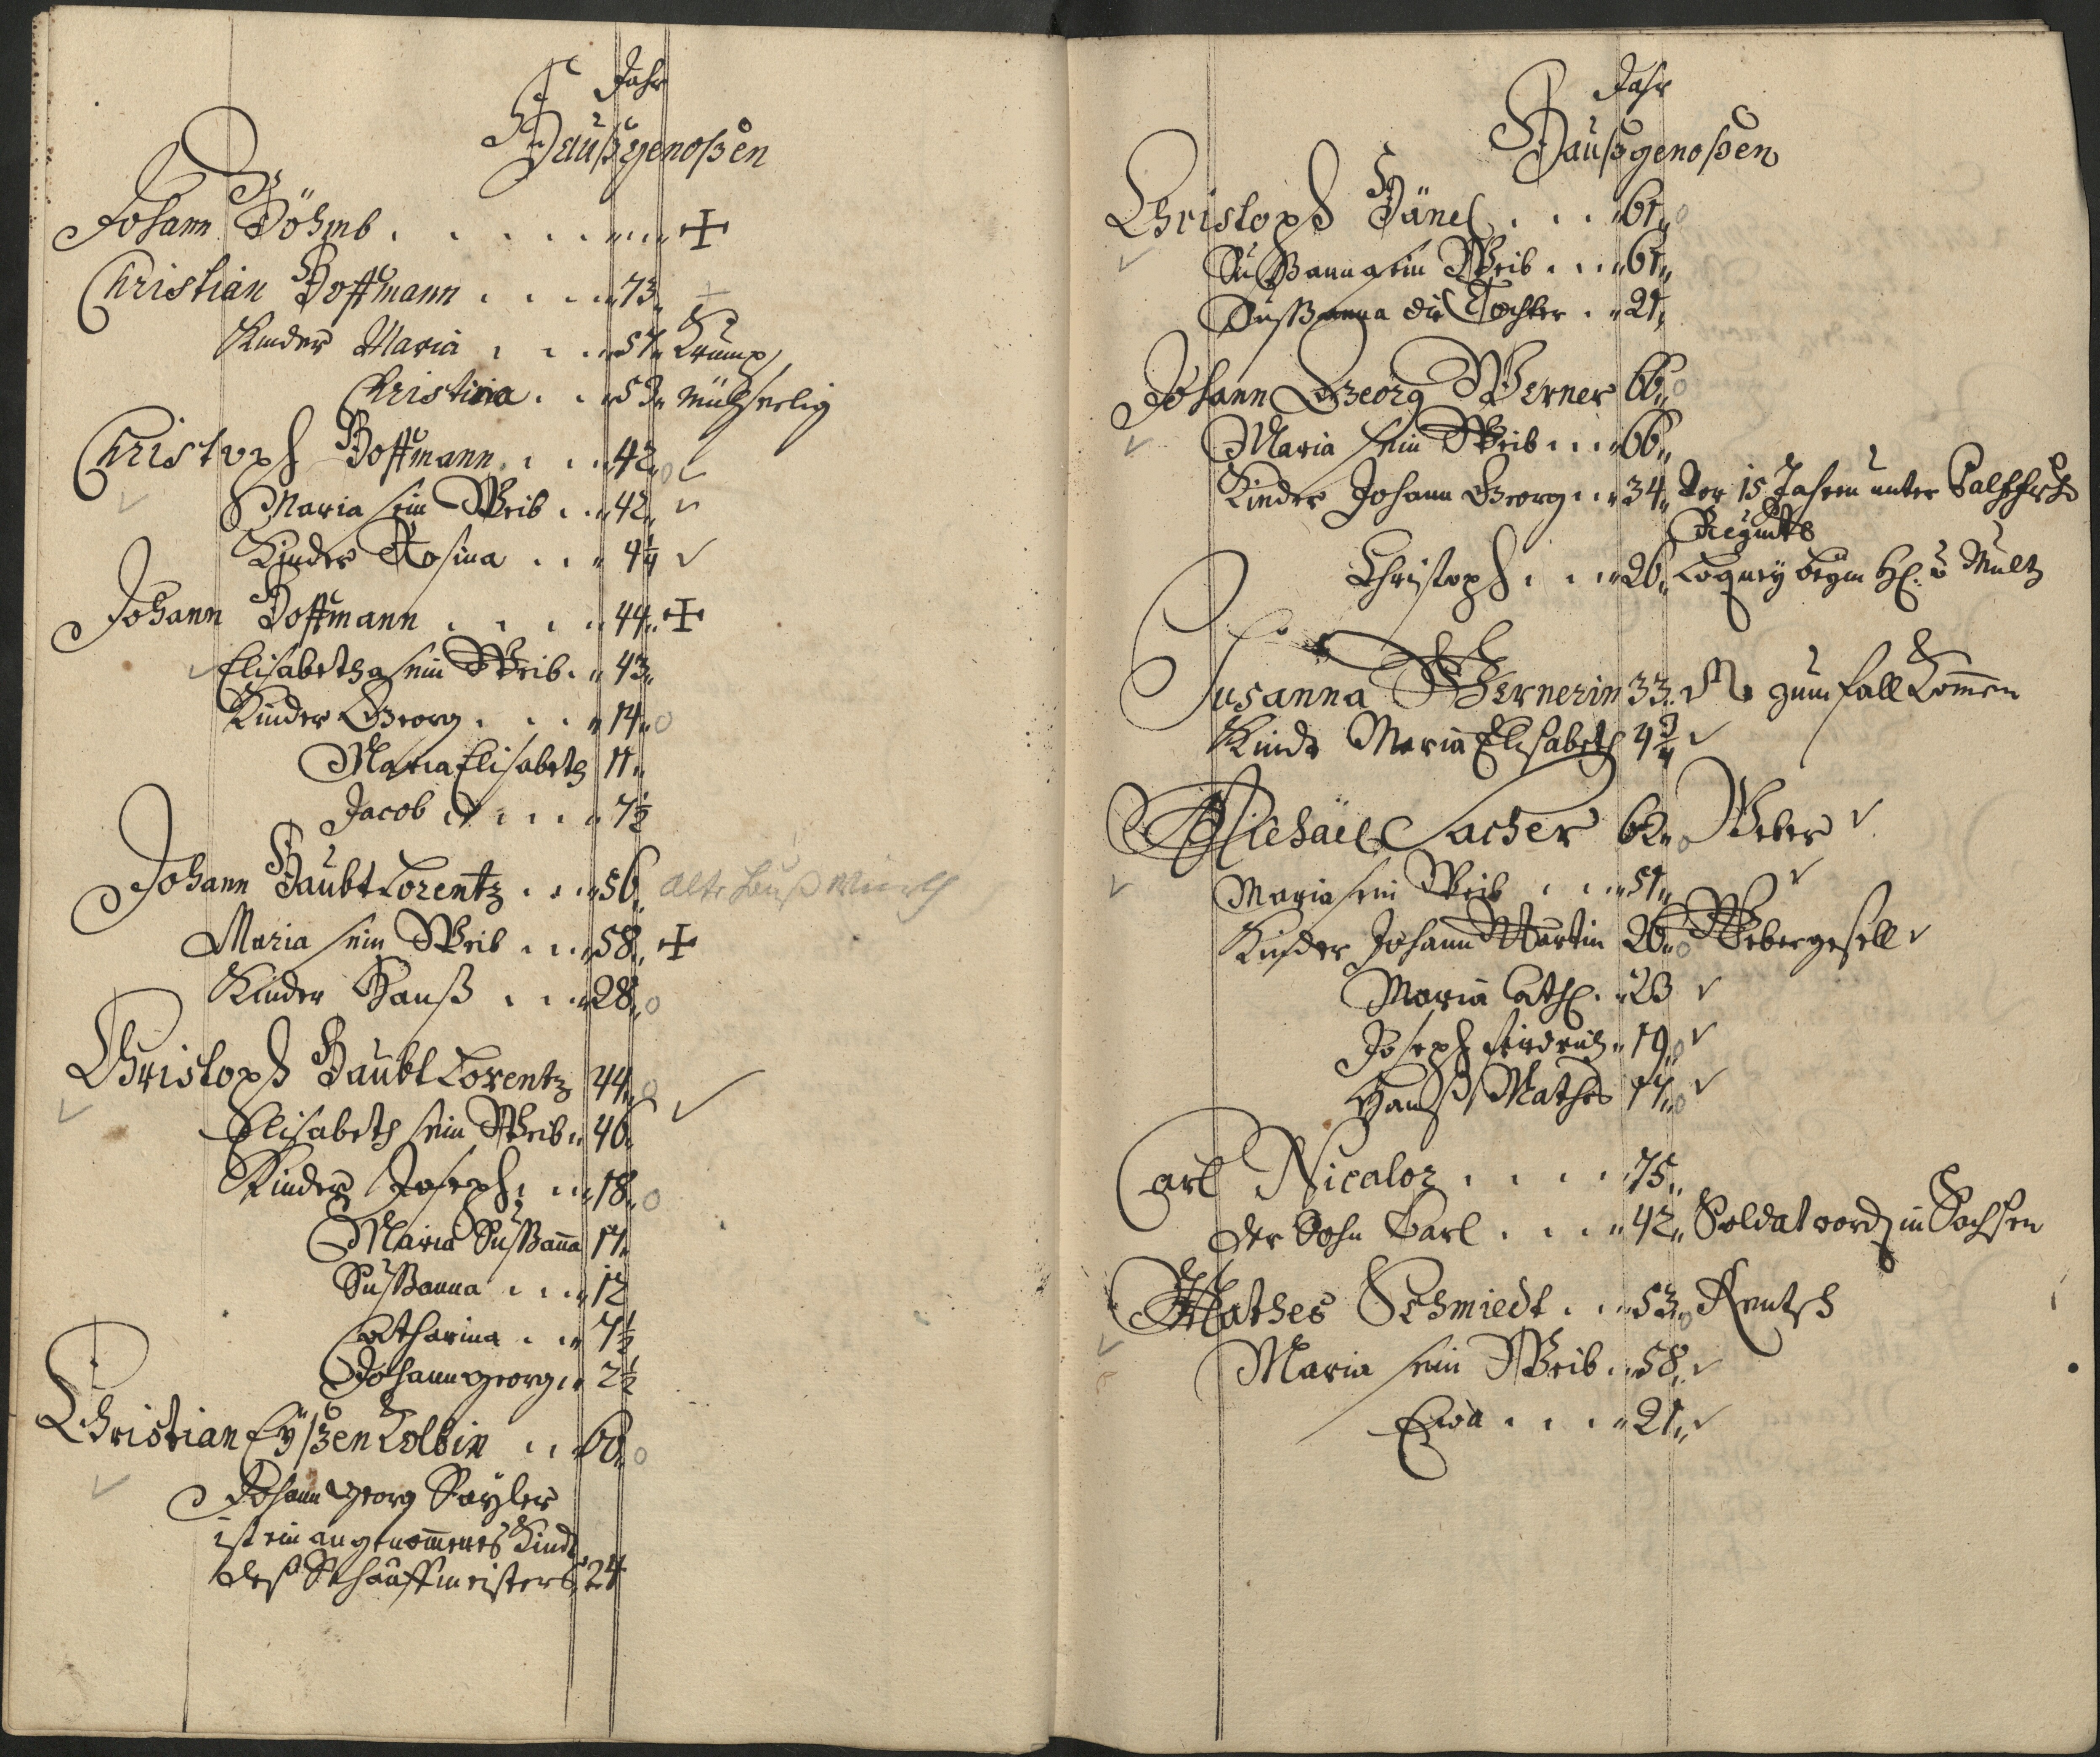 Jahr
Haußgenoßen
Johann Böhmb
Christian Hoffmann 73
Kinder Maria 57 Krump
Christina 53 müheseelig
Christoph Hoffmann 42
Maria sein Weib 42
Kinder Rosina 4¼
Johann Hoffmann 44
Elisabetha sein Weib 43
Kinder Georg 14
Maria Elisabeth 11
Jacob 7½
Johann HaubtLorentz 56 alte
Maria sein Weib 58
Kinder Hanß 28
Christoph Haubt Lorentz 44
Elisabeth sein Weib 46
Kinder Joseph 18
Maria Sußanna 17
Sußanna 12
Catharina 7½
Johann georg 2½
Christian EyßenKolbin 60
Johann Georg Sayler
ist ein angenommenes Kind
deß Schäuffmeisters 24
Jahr
Haußgenoßen
Christoph Hänel 61
Sußanna sein Weib 61
Sußanna die Tochter 21
Johann Georg Werner 66
Maria sein Weib 66
Kinder Johann Georg 34 Vor 15 Jahren unter
Regmts
Christoph 26 beym
Susanna Wernerin 33 zum fall Kommen
Kindt Maria Elisabeth 4¾
Michäel Sacher 62 Weber
Maria sein Weib 51
Kinder Johann Martin 26 Webergesell
Maria Cath. 23
Joseph fridrich 19
Hanß Mathes 17
Carl Nicaloz 75
der Sohn Carl 42 Soldat word in Sachsen
Mathes Schmiedt 53 Rentsch
Maria sein Weib 58
Eva 21